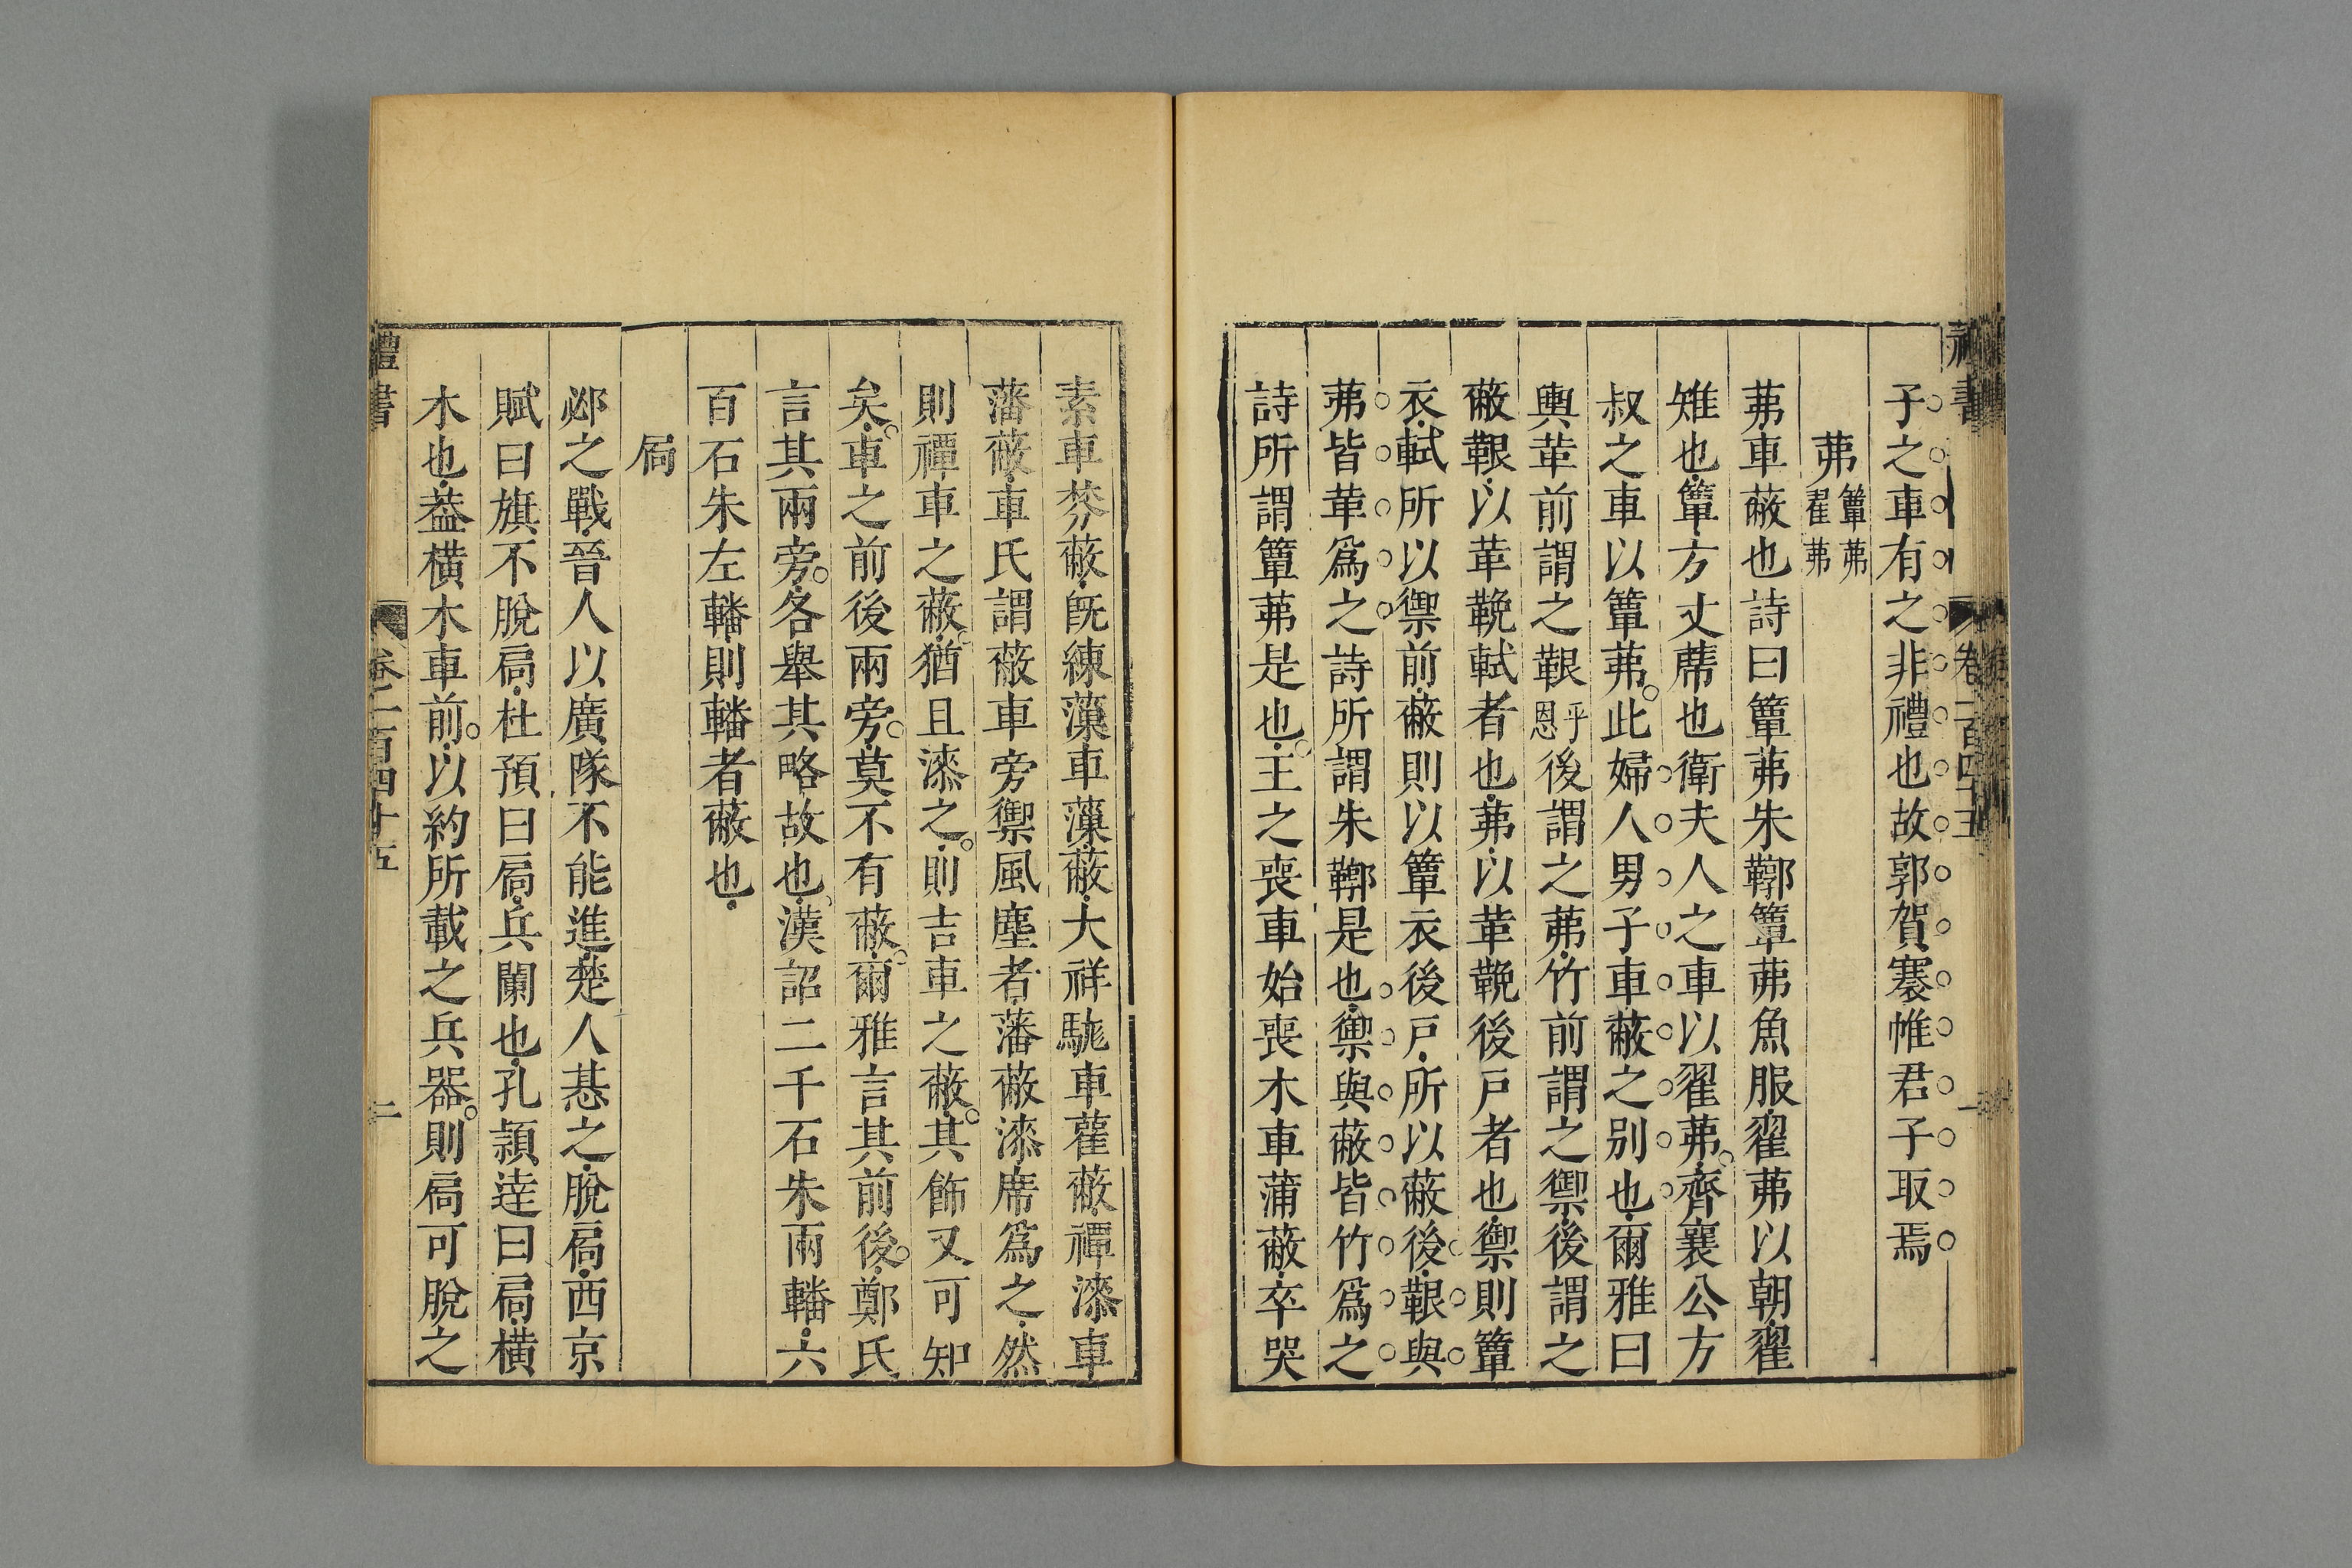 子之車有之非禮也故郭賀褰帷君子取焉
茀簟茀翟茀
茀車蔽也詩曰簟茀朱鞹簟茀魚服翟茀以朝翟
雉也簟方丈蓆也衛夫人之車以翟茀齊襄公方
叔之車以簟茀此婦人男子車蔽之别也爾雅曰
輿革前謂之鞎乎恩後謂之茀竹前謂之禦後謂之
蔽鞎以革鞔軾者也茀以革鞔後戸者也禦則簟
衣軾所以禦前蔽則以簟衣後戸所以蔽後鞎與
茀皆革爲之詩所謂朱鞹是也禦與蔽皆竹爲之
詩所謂簟茀是也王之喪車始喪木車蒲蔽卒哭
素車棼蔽旣練藻車藻蔽大祥駹車雚蔽禫漆車
藩蔽車氏謂蔽車旁禦風塵者藩蔽漆席爲之然
則禫車之蔽猶且漆之則吉車之蔽其飾又可知
矣車之前後兩旁莫不有蔽爾雅言其前後鄭氏
言其兩旁各舉其略故也漢詔二千石朱兩轓六
百石朱左轓則轓者蔽也
扃
邲之戰晉人以廣隊不能進楚人惎之脫扃西京
賦曰旗不脫扃杜預曰扃兵闌也孔頴逹曰扃橫
木也葢橫木車前以約所載之兵器則扃可脫之
禮書 卷二百四十五 二